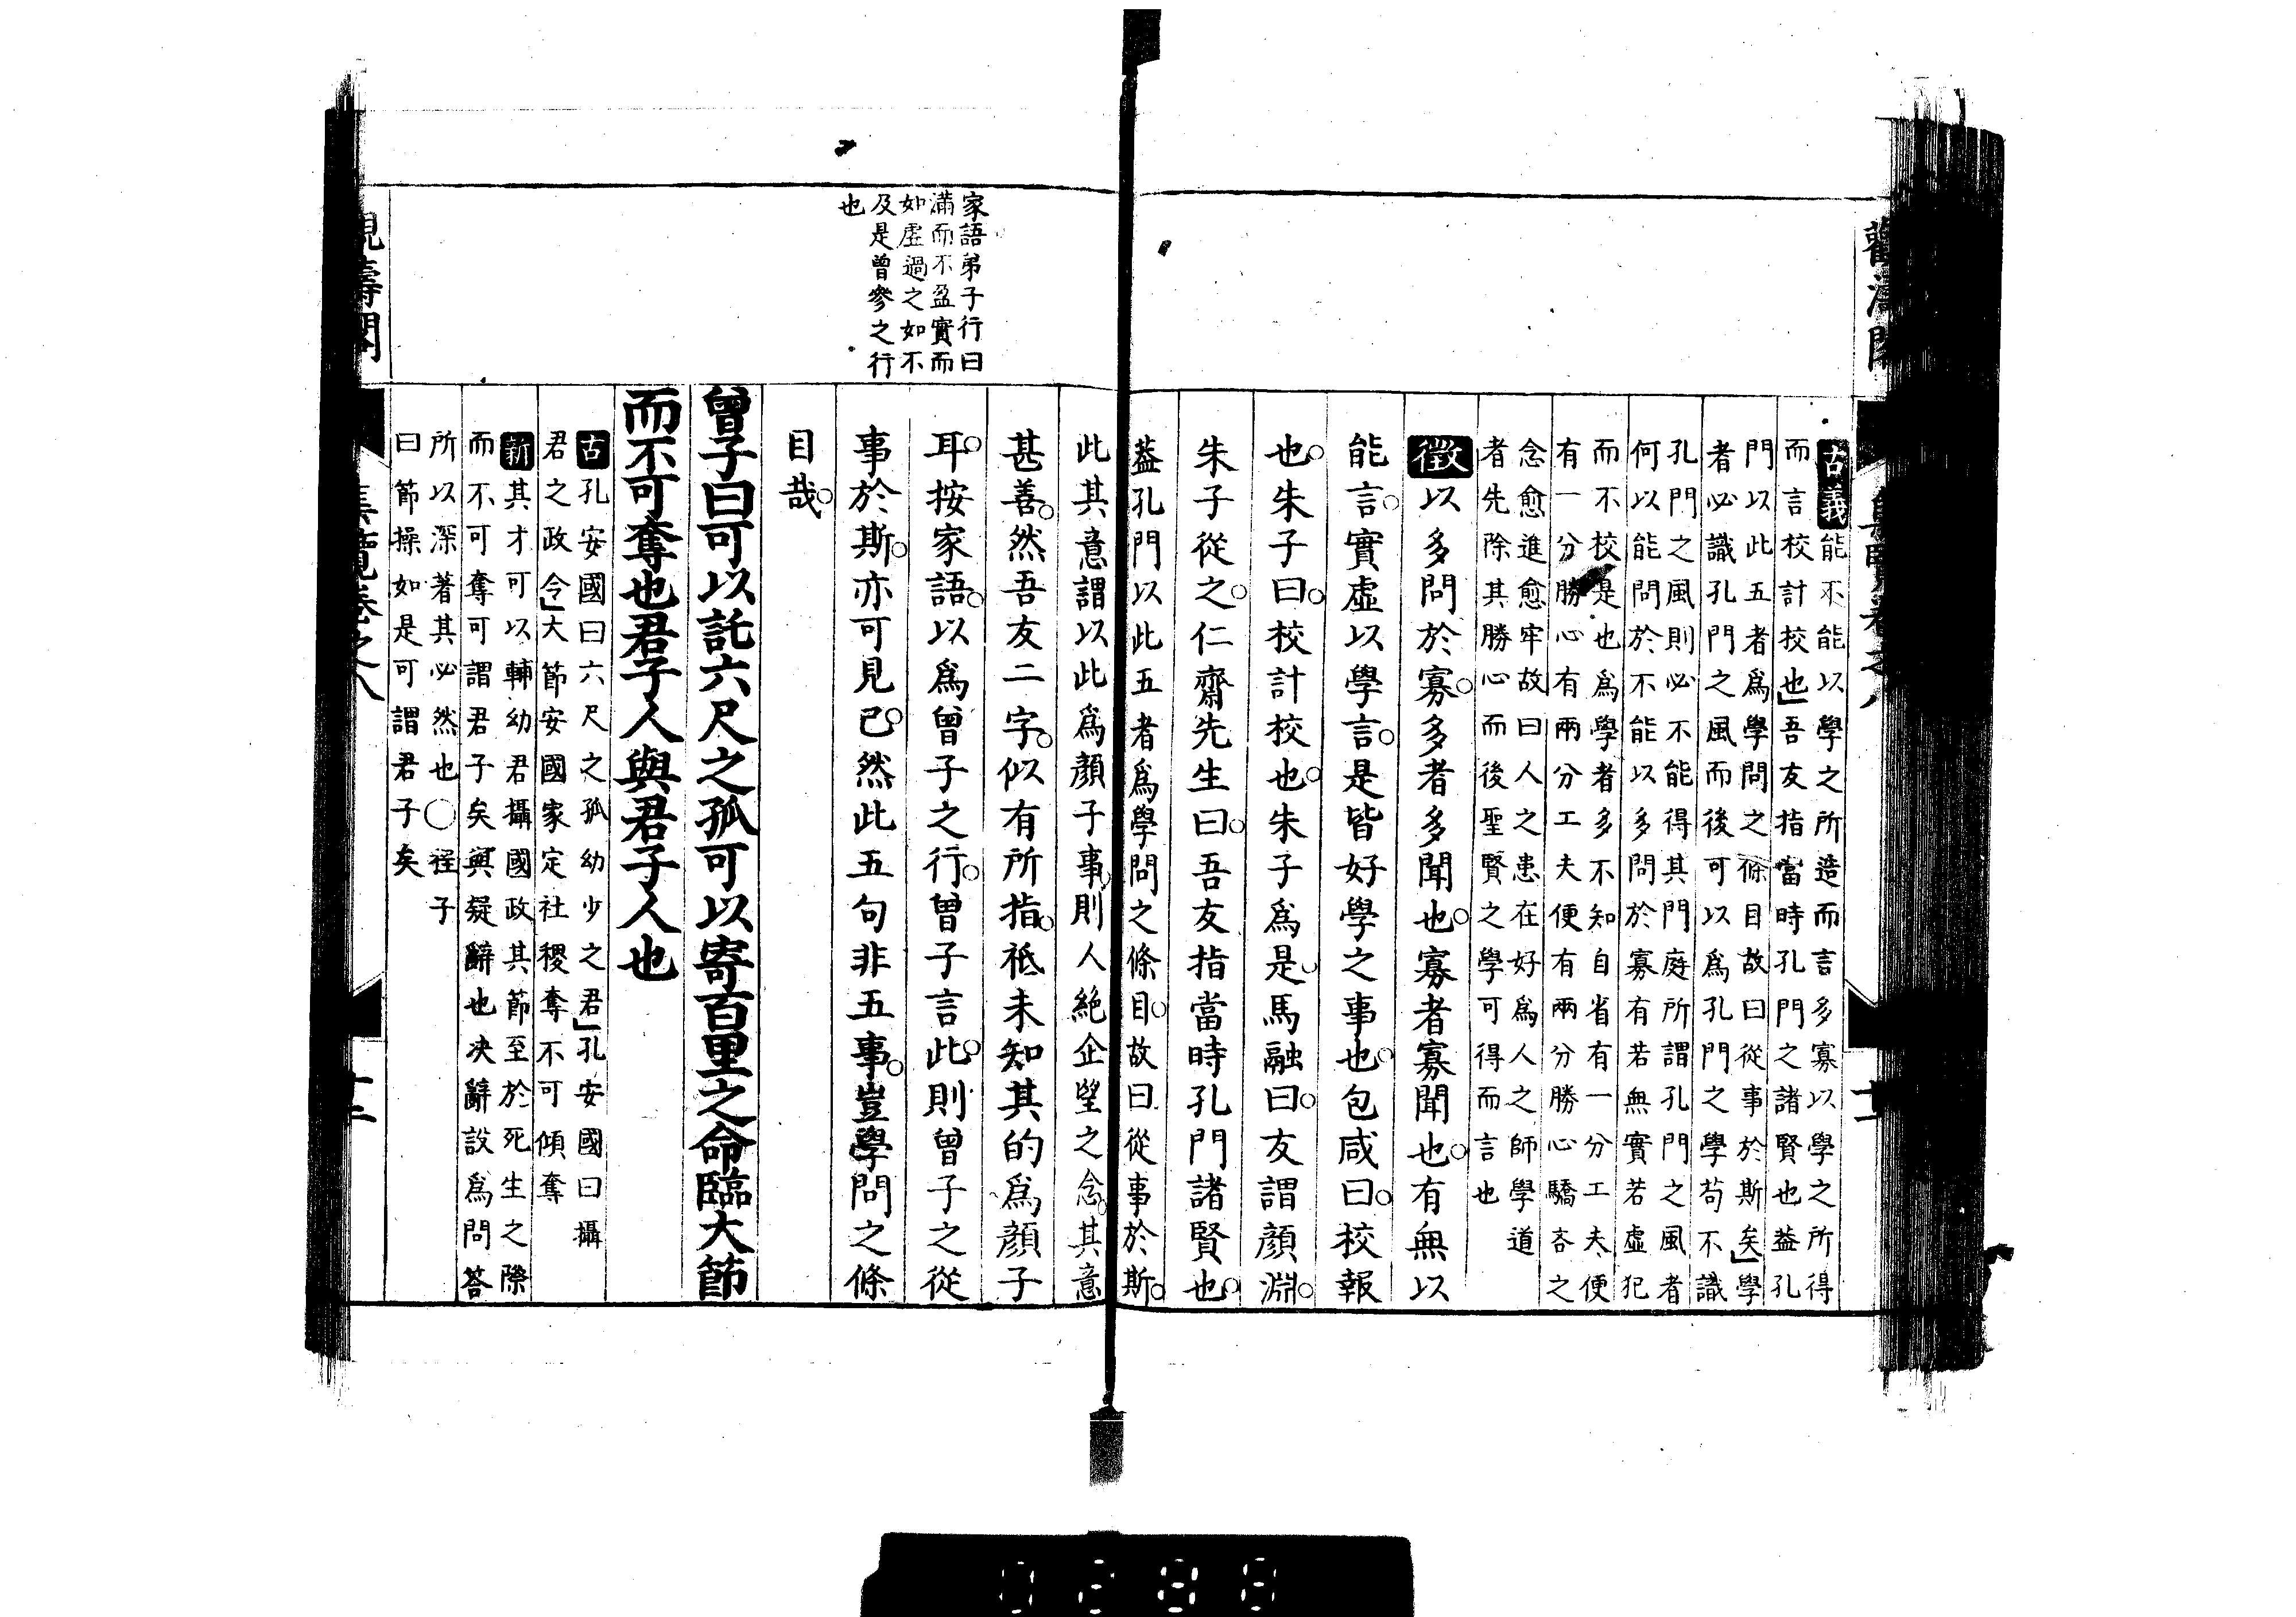 古義能不能以學之所造而言多寡以學之所得
而言校計校也」吾友指當時孔門之諸賢也葢孔
門以此五者爲學問之條目故曰從事於斯矣」學
者必識孔門之風而後可以爲孔門之學苟不識
孔門之風則必不能得其門庭所謂孔門之風者
何以能問於不能以多問於寡有若無實若虛犯
而不校是也爲學者多不知自省有一分工夫便
有一分勝心有兩分工夫便有兩分勝心驕吝之
念愈進愈牢故曰人之患在好爲人之師學道
者先除其勝心而後聖賢之學可得而言也
徵以多問於寡。多者多聞也。寡者寡聞也。有無以
能言。實虛以學言。是皆好學之事也。包咸曰。校報
也。朱子曰。校計校也。朱子爲是。馬融曰。友謂顏淵。
朱子從之。仁齋先生曰。吾友指當時孔門諸賢也。
葢孔門以此五者爲學問之條目。故曰從事於斯。
此其意謂以此爲顏子事。則人絶企望之念。其意
甚善。然吾友二字。似有所指。祗未知其的爲顏子
耳。按家語。以爲曾子之行。曾子言此。則曾子之從
事於斯。亦可見已。然此五句非五事。豈學問之條
目哉。
家語弟子行曰
滿而不盈實而
如虛過之如不
及是曾參之行
也
曾子曰可以託六尺之孤可以寄百里之命臨大節
而不可奪也君子人與君子人也
古孔安國曰六尺之孤幼少之君」孔安國曰攝
君之政令」大節安國家定社稷奪不可傾奪
新其才可以輔幼君攝國政其節至於死生之際
而不可奪可謂君子矣與疑辭也决辭設爲問答
所以深著其必然也○程子
曰節操如是可謂君子矣